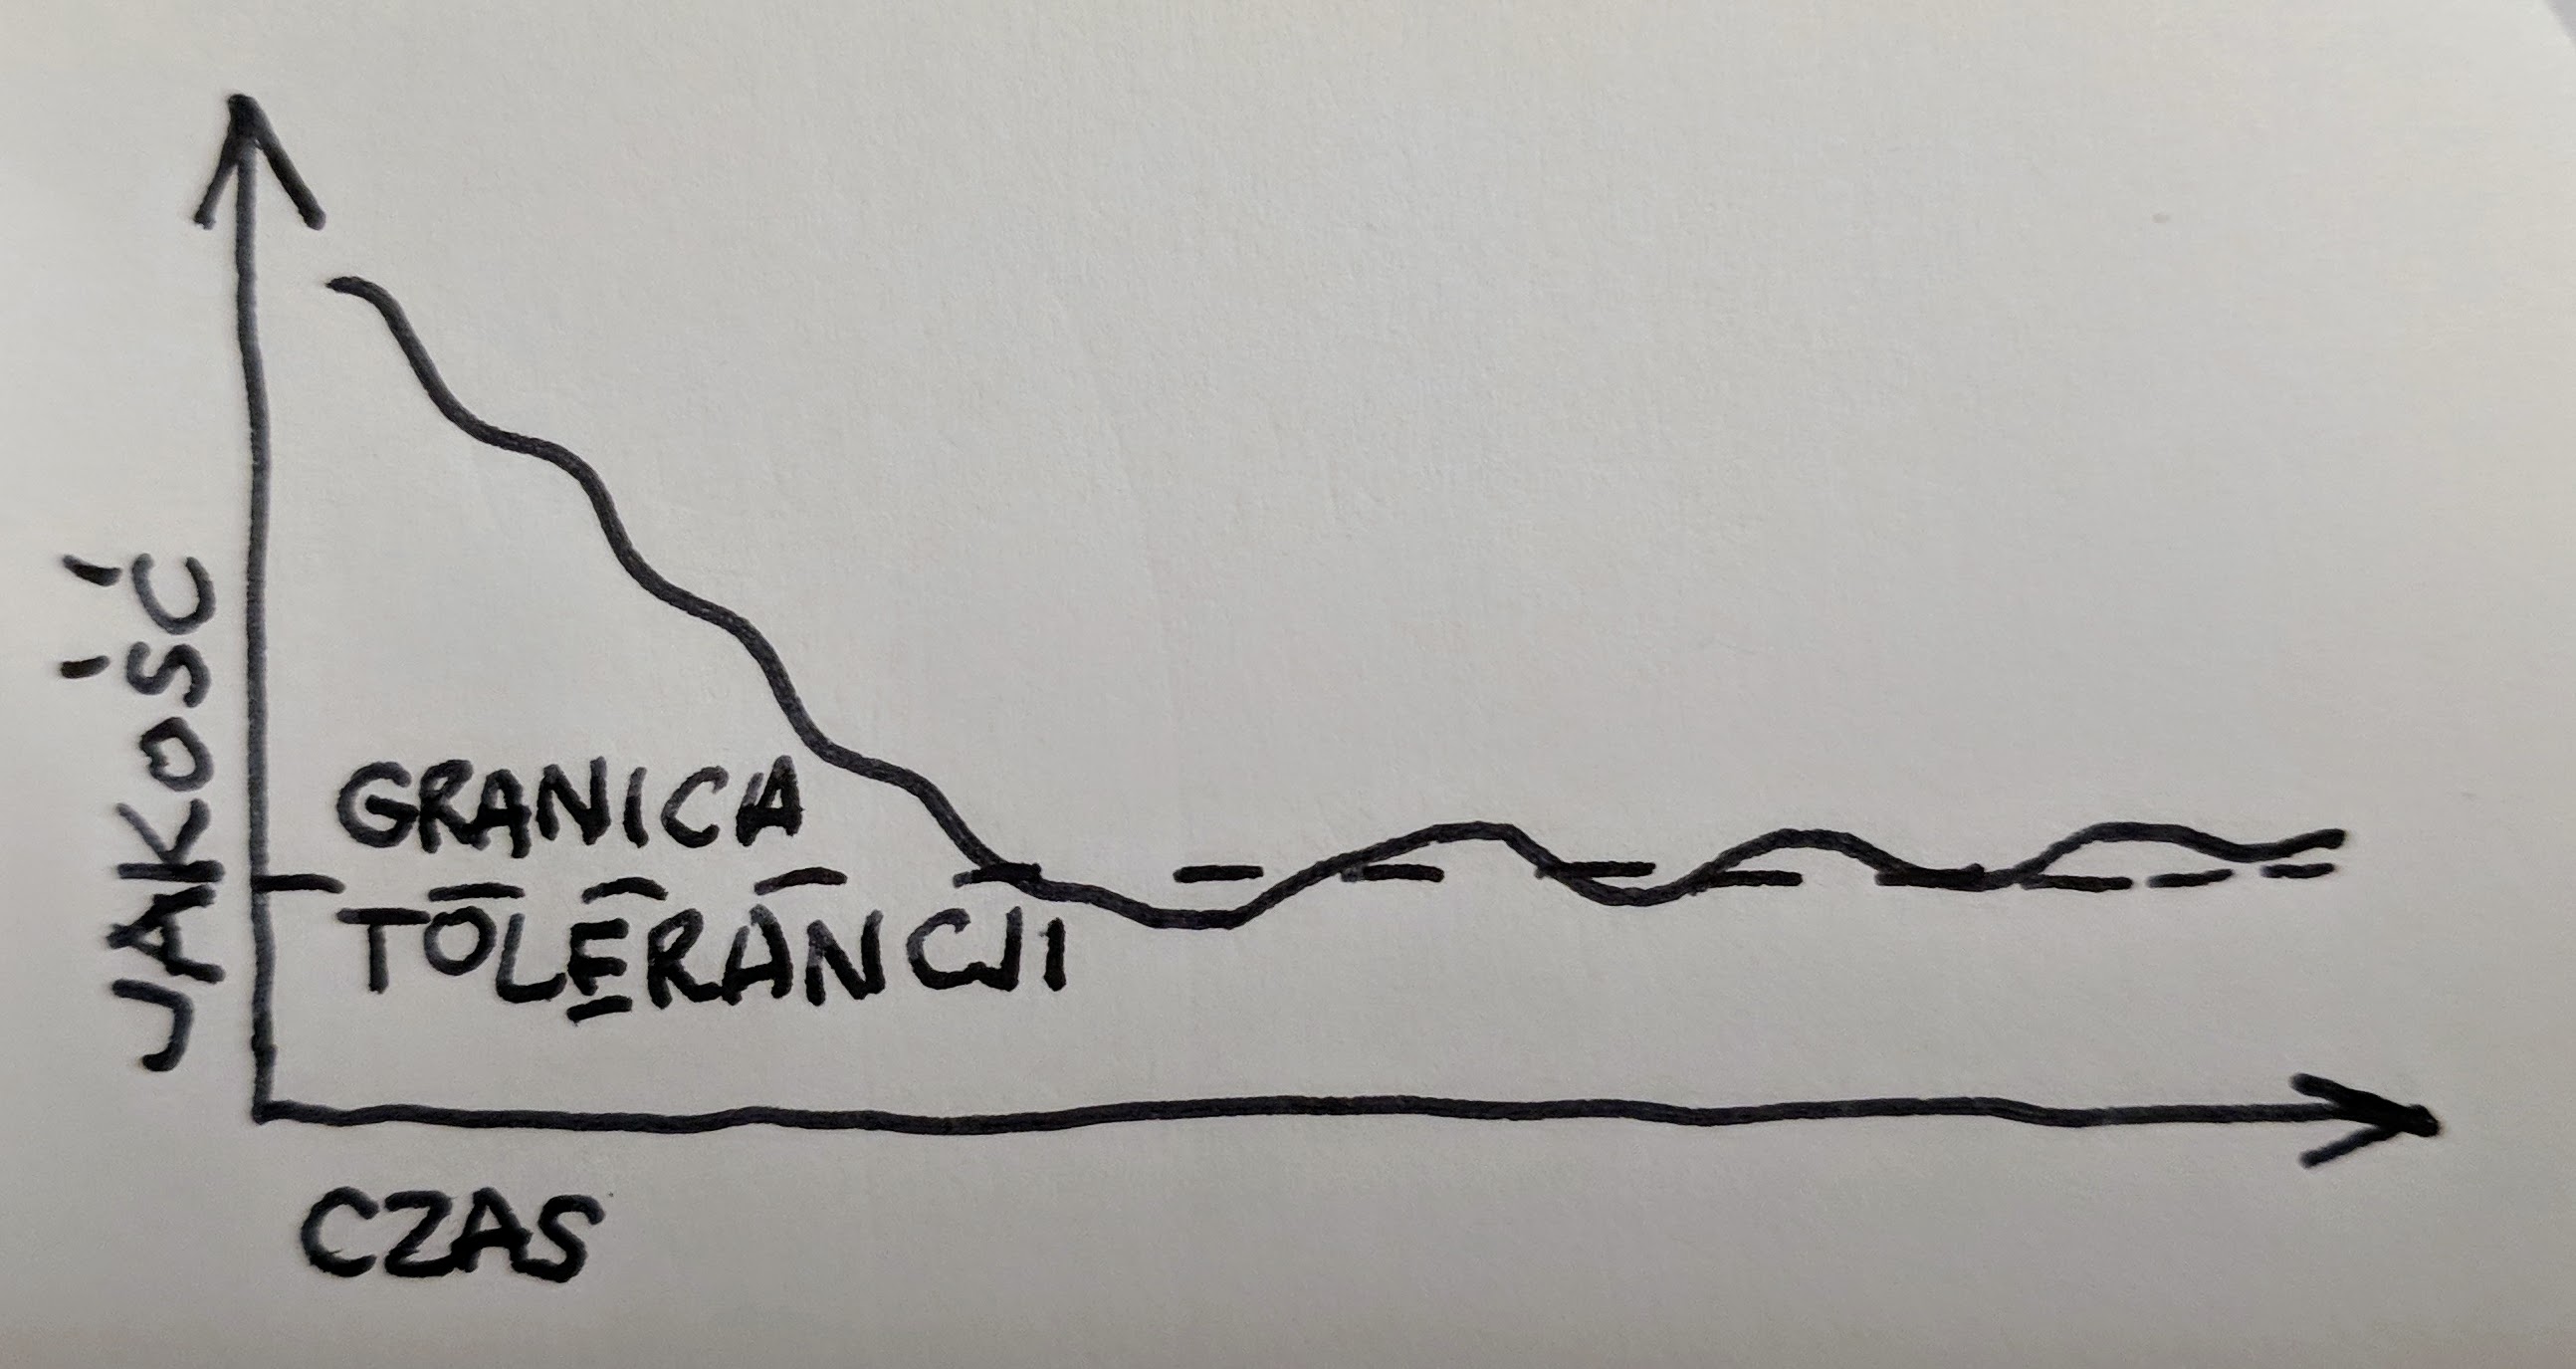 JAKOŚĆ
GRANICA
TOLERANCJI
CZAS